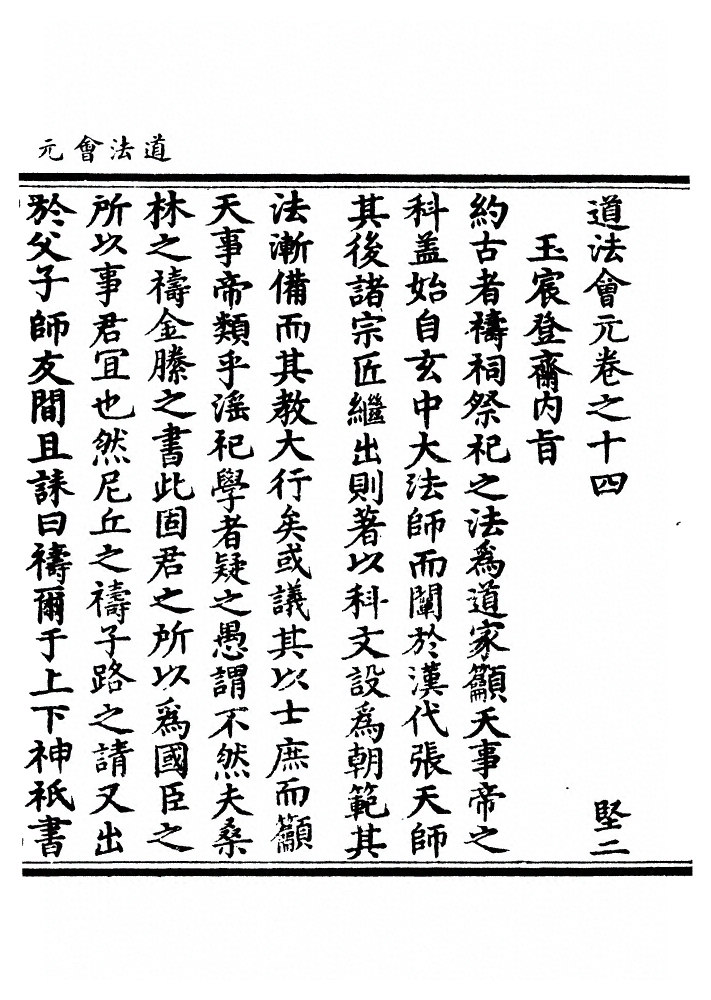 道法會元
道法會元卷之十四　堅二
玉宸登齋內旨
約古者禱祠祭祀之法爲道家籲天事帝之
科蓋始自玄中大法師而闡於漢代張天師
其後諸宗匠繼出則著以科文設爲朝範其
法漸備而其教大行矣或議其以士庶而籲
天事帝類乎滛祀學者疑之愚謂不然夫桑
林之禱金縢之書此固君之所以爲國臣之
所以事君冝也然尼丘之禱子路之請又出
於父子師友間且誄曰禱爾于上下神祇書